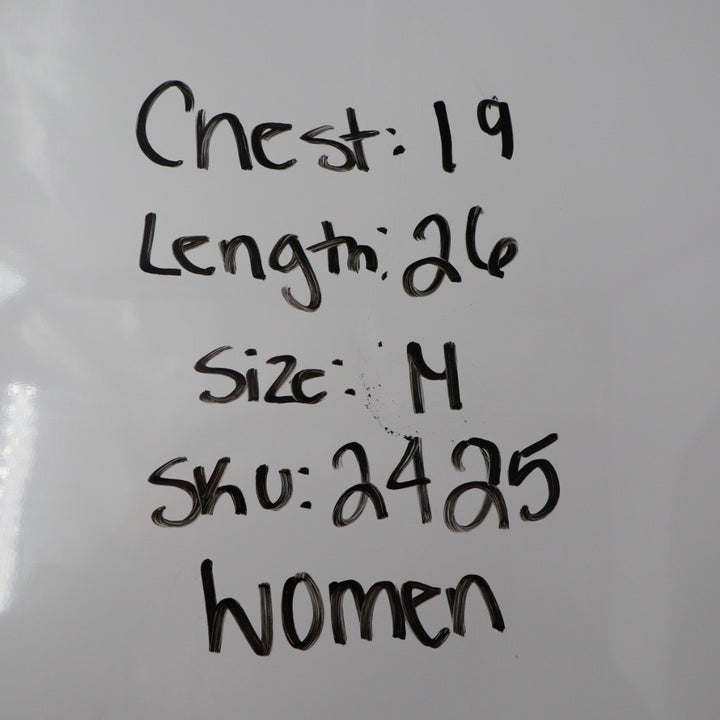 Chest: 19
Length: 26
Size: M
Sku: 2425
Women